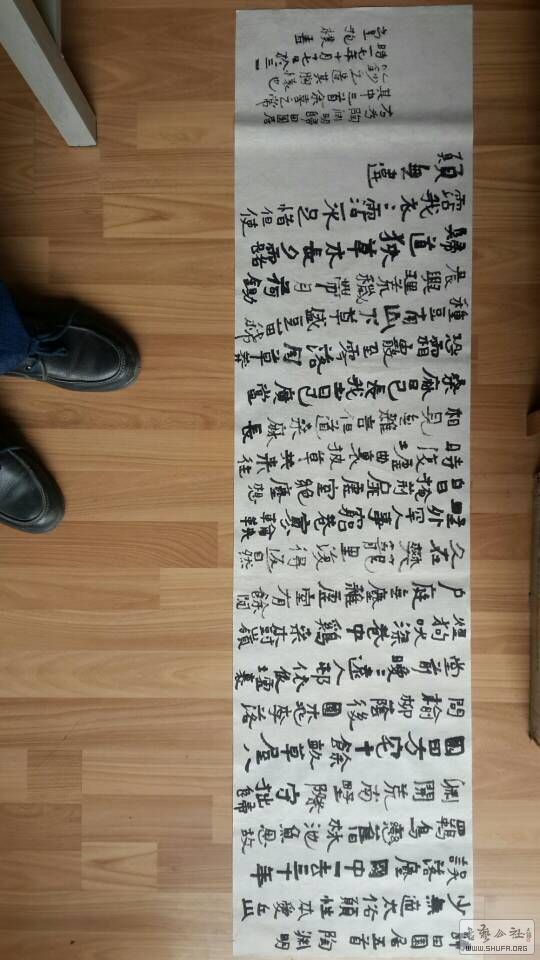 歸田園居五首 陶淵明
少無適俗韻性本愛丘山
誤落塵網中一去三十年
羈鳥戀舊林池魚思故
淵開荒南野際守拙歸
園田方宅十餘畝草屋八
間榆柳蔭後園桃李落
堂前曖遠人邨依依墟裏
煙狗吠深巷中鷄桑樹巔
戶庭無塵雜虛室有餘閒
久在樊籠裏復得返自然
野外罕人事窮巷寡輪鞅
白日掩荊扉虛室絕塵想
時復墟曲裏披草共來往
相見無雜言但道桑麻長
桑麻日已長我土日已廣常
恐霜霰至零落同草莽
種豆南山下草盛豆苗稀
晨興理荒穢帶月荷鋤
歸道狹草木長夕露
霑我衣衣霑不足惜但使
願無違
右爲陶淵明歸田園居
其中三首余喜之常
其胸懷也
時一七年十月十七日於三
WWW.SHUFA.ORG